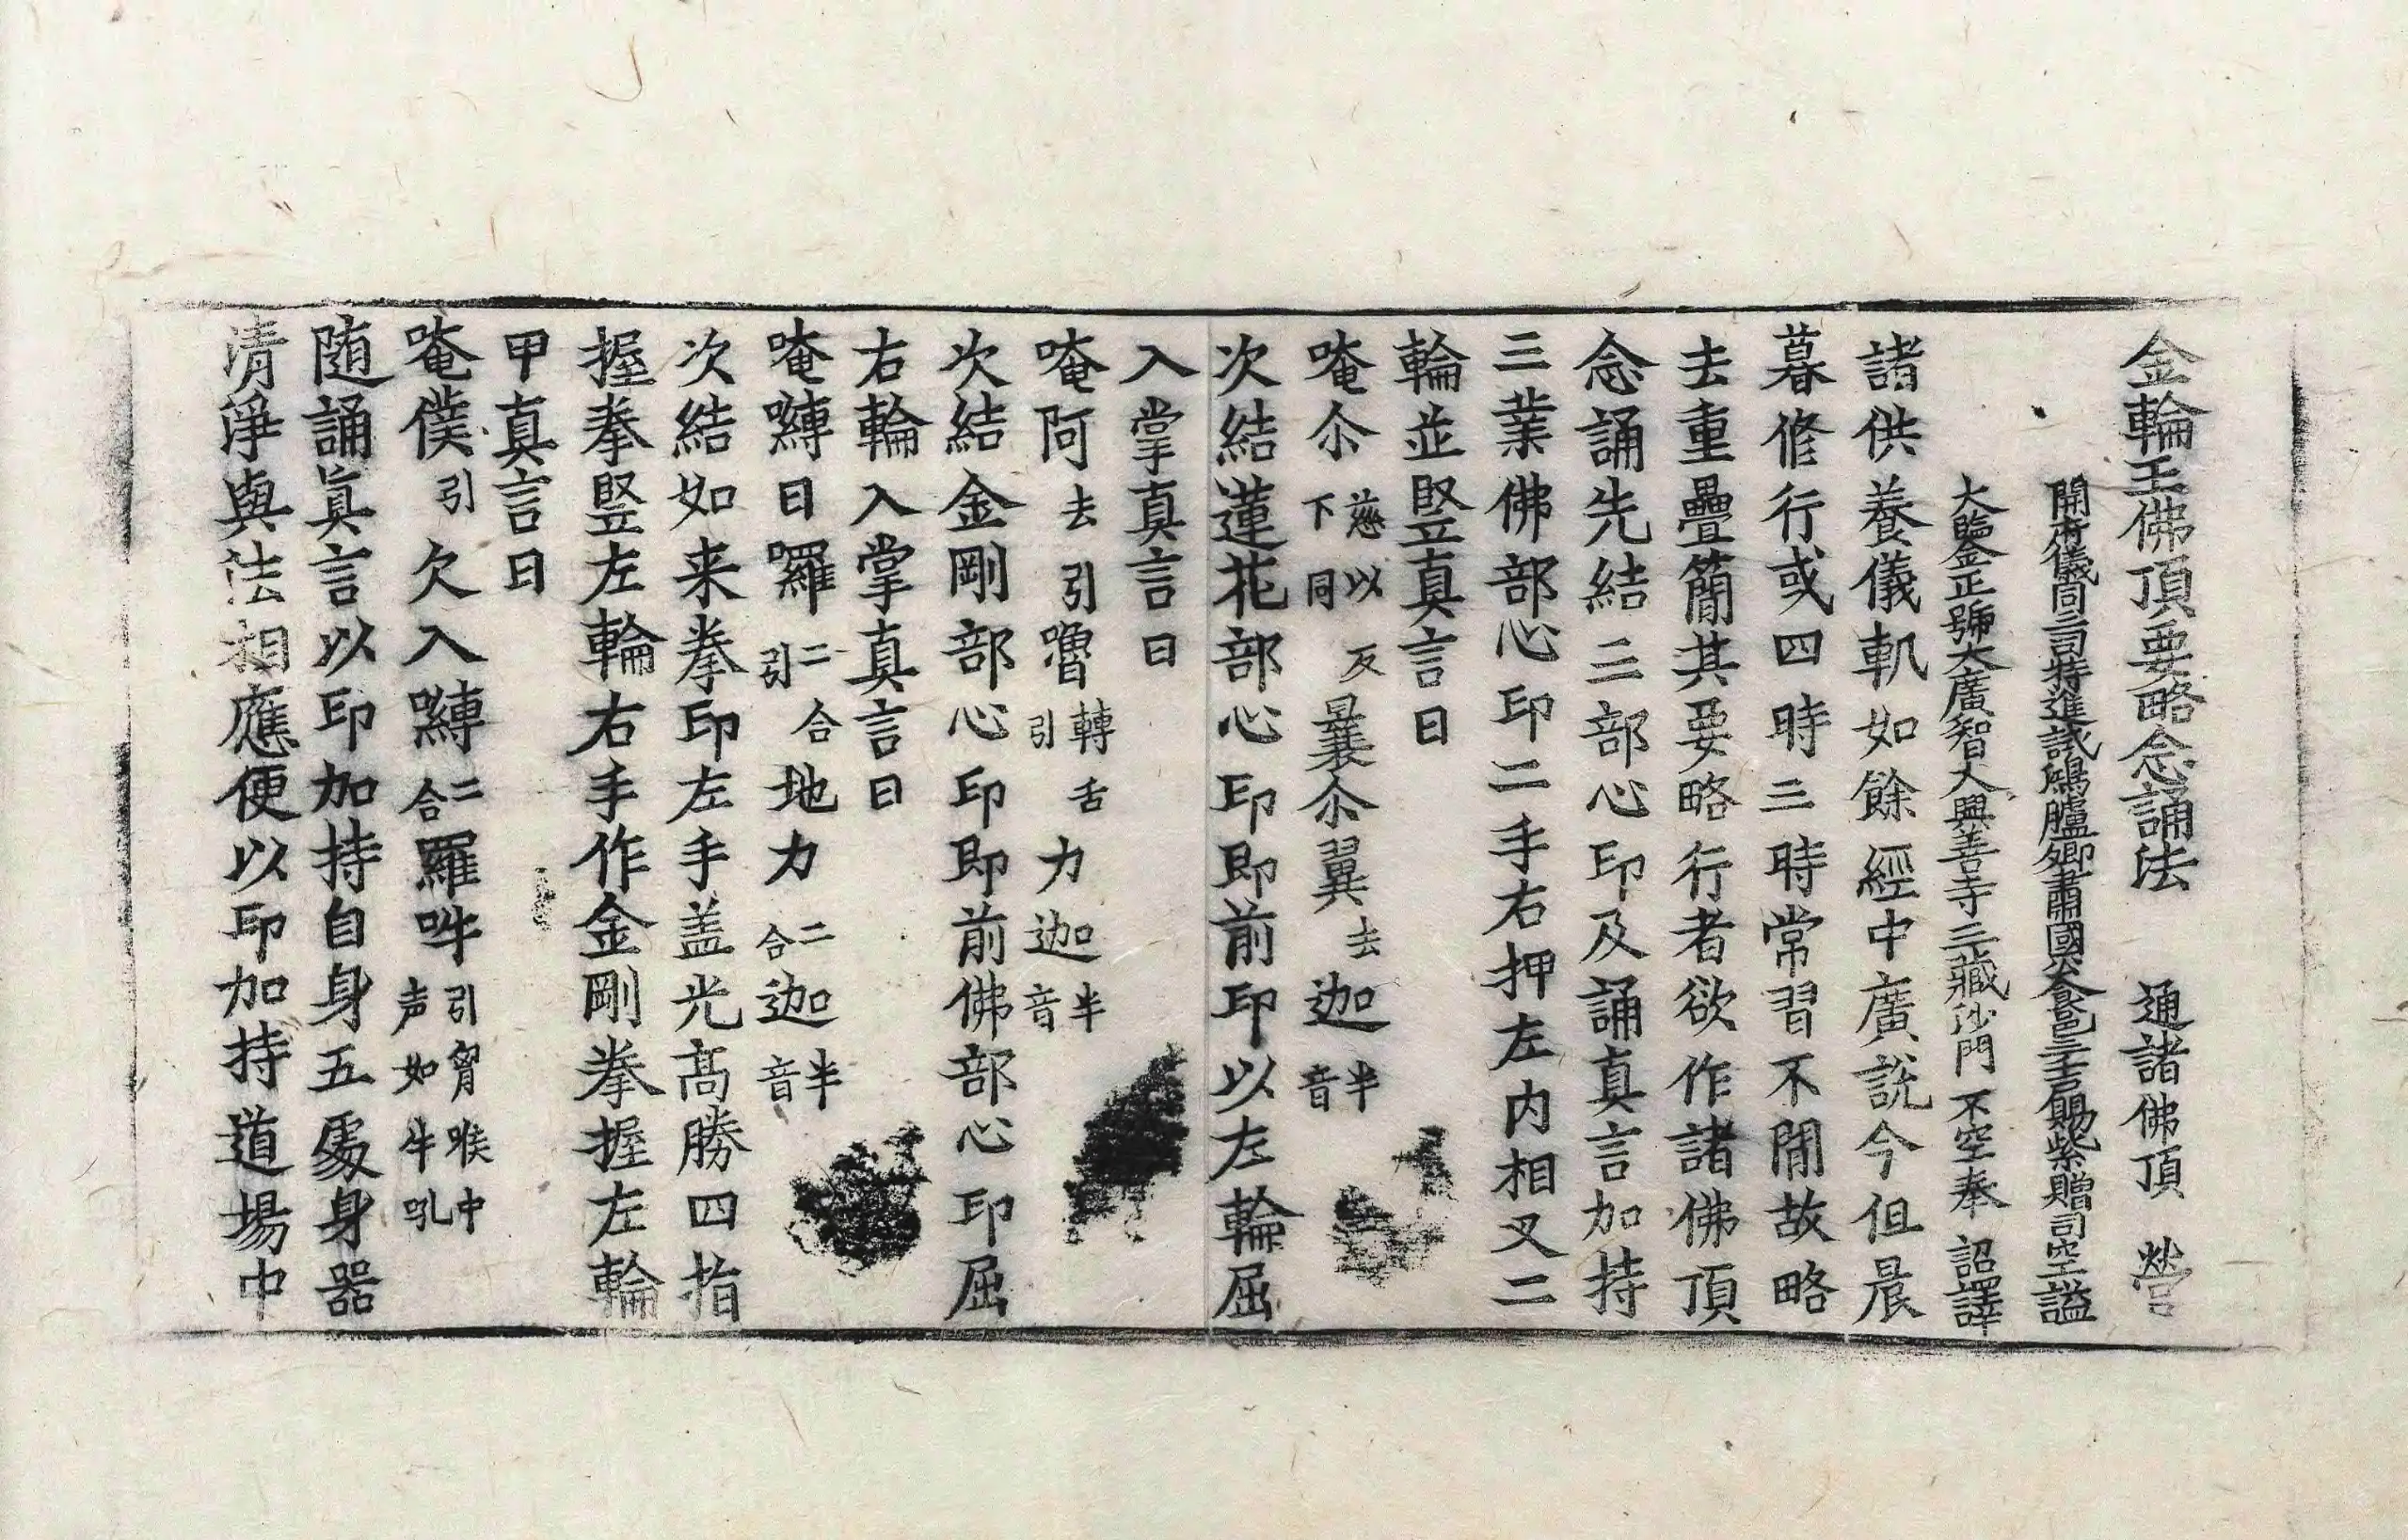 金輪王佛頂要略念誦法 通諸佛頂 營
開府儀同三司特進試鴻臚卿肅國公食邑三千戶賜紫贈司空謚
大鑒正號大廣智大興善寺三藏沙門不空奉 詔譯
諸供養儀軌如餘經中廣說今但晨
暮修行或四時三時常習不閒故略
去重疊簡其要略行者欲作諸佛頂
念誦先結三部心印及誦真言加持
三業佛部心印二手右押左内相叉二
輪並竪真言曰
唵尒慈以反下同曩尒翼去迦半音
次結蓮花部心印即前印以左輪屈
入掌真言曰
唵阿去引嚕轉舌引力迦半音
次結金剛部心印即前佛部心印屈
右輪入掌真言曰
唵嚩日囉二合引地力二合迦半音
次結如来拳印左手盖光高勝四指
握拳竪左輪右手作金剛拳握左輪
甲真言曰
唵僕引欠入嚩二合羅吽引胷喉中声如牛吼
随誦真言以印加持自身五處身器
清淨與法相應便以印加持道場中